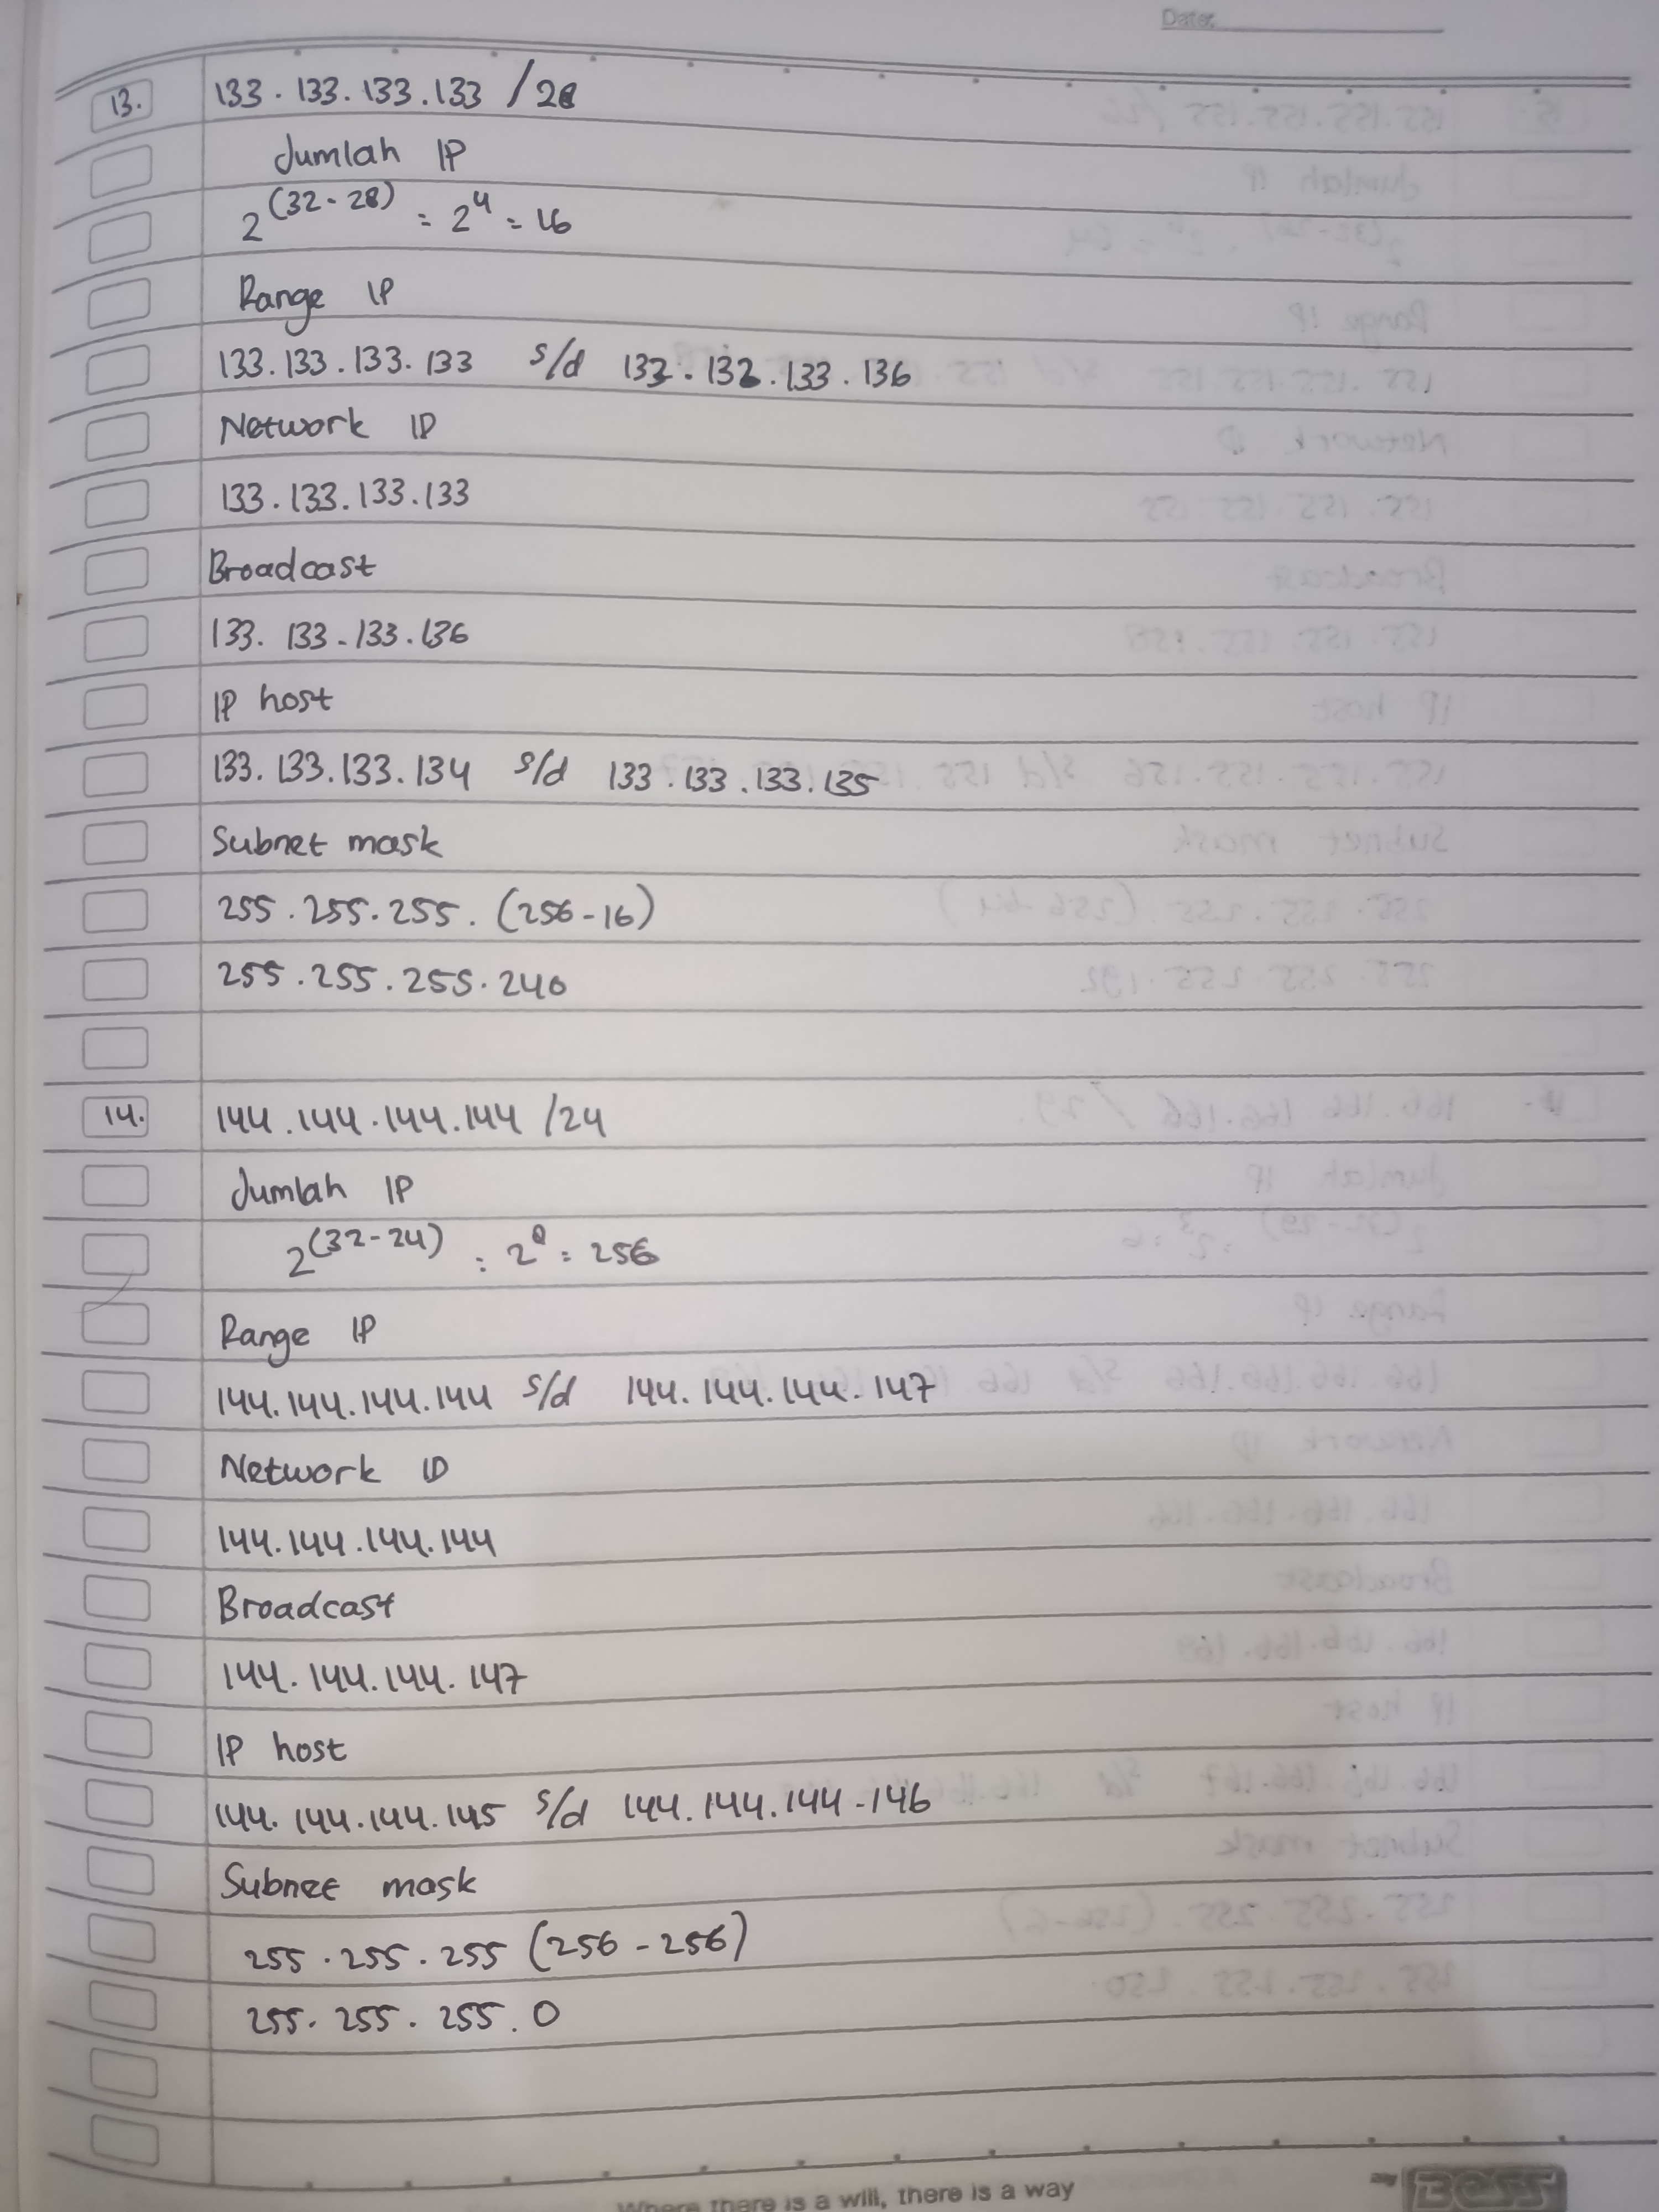 Date:
13. 133.133.133.133 /28
Jumlah IP
2^(32-28) = 2^4 = 16
Range IP
133.133.133.133 s/d 133.133.133.136
Network ID
133.133.133.133
Broadcast
133.133-133.136
IP host
133.133.133.134 s/d 133.133.133.135
Subnet mask
255.255.255.(256-16)
255.255.255.240
14. 144.144.144.144 /24
Jumlah IP
2^(32-24) : 2^8 : 256
Range IP
144.144.144.144 s/d 144.144.144.147
Network ID
144.144.144.144
Broadcast
144.144.144.147
IP host
144.144.144.145 s/d 144.144.144-146
Subnet mask
255.255.255 (256-256)
255.255.255.0
Where there is a will, there is a way
BOSS